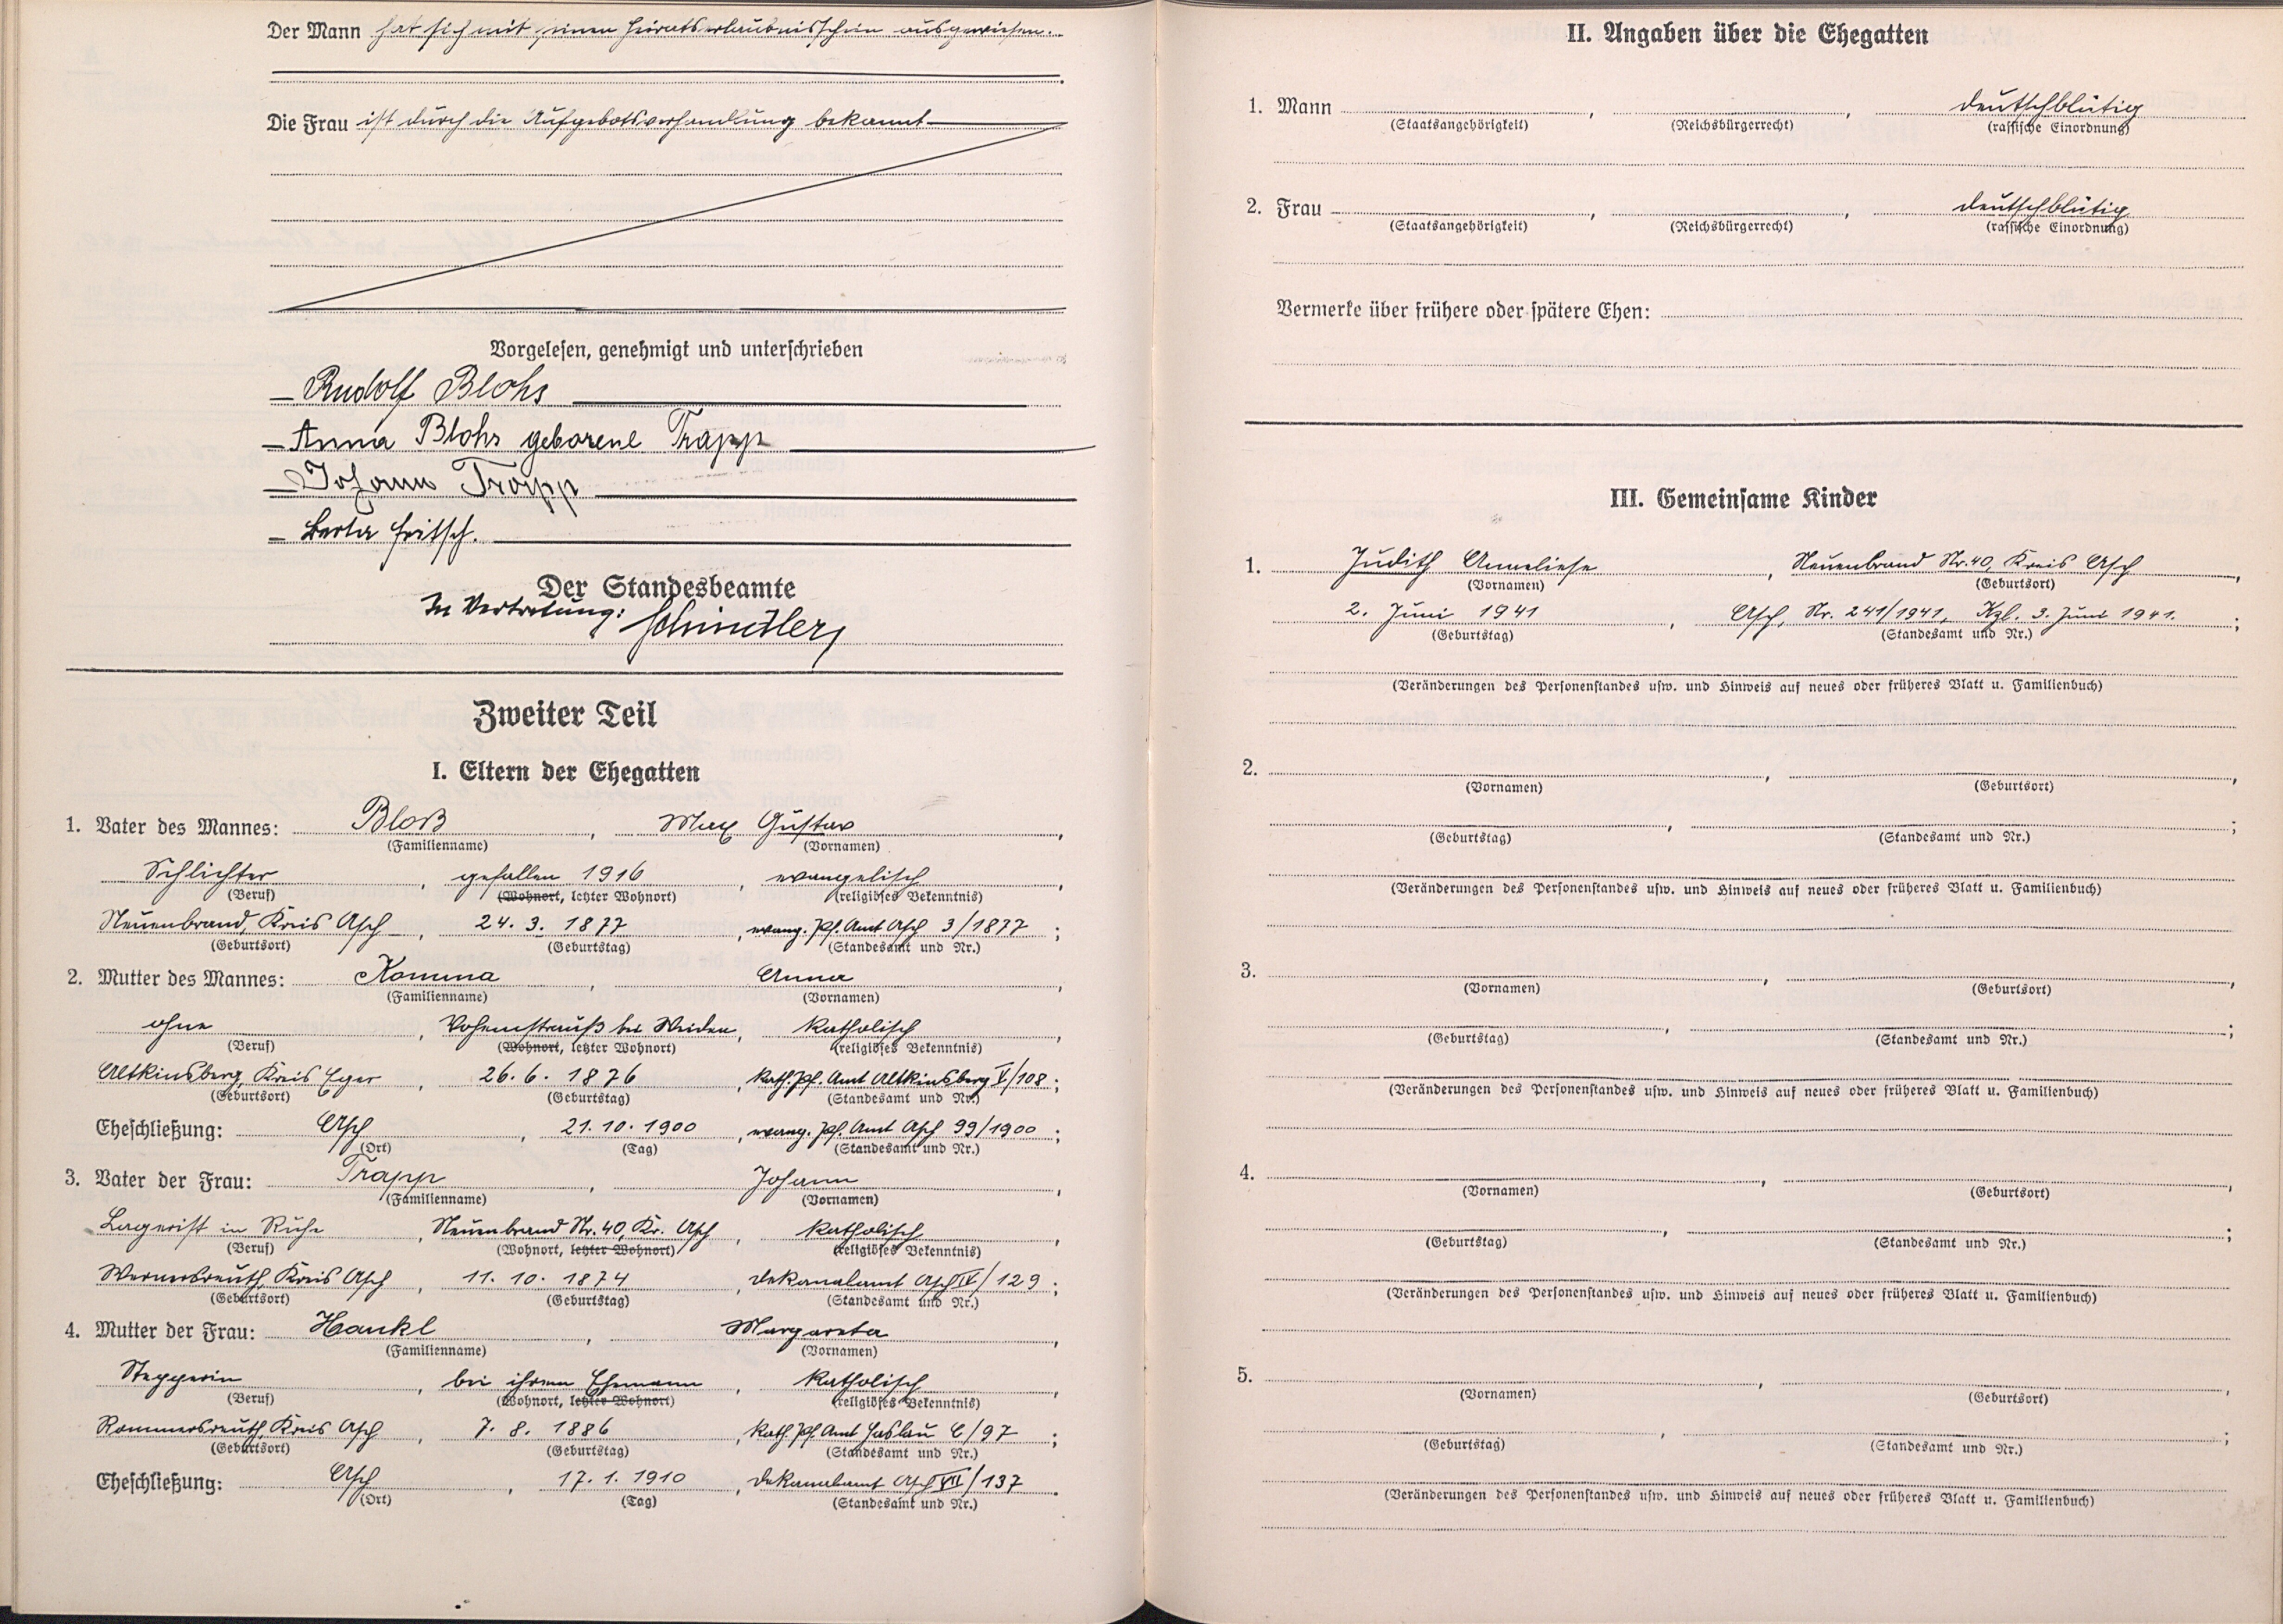 Der Mann hat sich mit seinem Heiratserlaubnisschein ausgewiesen.
Die Frau ist durch die Aufgebotsverhandlung bekannt
Vorgelesen, genehmigt und unterschrieben
Rudolf Blohs
Anna Blohs geborene Trapp
Johann Trapp
Berta Fritsch.
Der Standesbeamte
In Vertretung: Schindler
Zweiter Teil
I. Eltern der Ehegatten
1. Vater des Mannes: Bloß, Max Gustav,
(Familienname) (Vornamen)
Schlichter, gefallen 1916, evangelisch,
(Beruf) (Wohnort, letzter Wohnort) (religiöses Bekenntnis)
Neuenbrand, Kreis Asch, 24. 3. 1877, evang. Pf. Amt Asch 3/1877;
(Geburtsort) (Geburtstag) (Standesamt und Nr.)
2. Mutter des Mannes: Komma, Anna,
(Familienname) (Vornamen)
ohne, Vohenstrauß bei Weiden, katholisch,
(Beruf) (Wohnort, letzter Wohnort) (religiöses Bekenntnis)
Altkinsberg, Kreis Eger, 26. 6. 1876, kath. Pf. Amt Altkinsberg V/108;
(Geburtsort) (Geburtstag) (Standesamt und Nr.)
Eheschließung: Asch, 21. 10. 1900, evang. Pf. Amt Asch 99/1900;
(Ort) (Tag) (Standesamt und Nr.)
3. Vater der Frau: Trapp, Johann,
(Familienname) (Vornamen)
Lagerist in Ruhe, Neuenbrand Nr. 40, Kr. Asch, katholisch,
(Beruf) (Wohnort, letzter Wohnort) (religiöses Bekenntnis)
Wernersreuth, Kreis Asch, 11. 10. 1874, Dekanalamt Asch IV/129;
(Geburtsort) (Geburtstag) (Standesamt und Nr.)
4. Mutter der Frau: Hankl, Margareta,
(Familienname) (Vornamen)
Stepperin, bei ihrem Ehemann, katholisch,
(Beruf) (Wohnort, letzter Wohnort) (religiöses Bekenntnis)
Rommersreuth, Kreis Asch, 7. 8. 1886, kath. Pf. Amt Haslau C/97;
(Geburtsort) (Geburtstag) (Standesamt und Nr.)
Eheschließung: Asch, 17. 1. 1910, Dekanalamt Asch VII/137.
(Ort) (Tag) (Standesamt und Nr.)
II. Angaben über die Ehegatten
1. Mann , , deutschblütig
(Staatsangehörigkeit) (Reichsbürgerrecht) (rassische Einordnung)
2. Frau , , deutschblütig
(Staatsangehörigkeit) (Reichsbürgerrecht) (rassische Einordnung)
Vermerke über frühere oder spätere Ehen:
III. Gemeinsame Kinder
1. Judith Anneliese, Neuenbrand Nr. 40, Kreis Asch,
(Vornamen) (Geburtsort)
2. Juni 1941, Asch, Nr. 241/1941, Kzl. 3. Juni 1941.;
(Geburtstag) (Standesamt und Nr.)
(Veränderungen des Personenstandes usw. und Hinweis auf neues oder früheres Blatt u. Familienbuch)
2. , ,
(Vornamen) (Geburtsort)
, ;
(Geburtstag) (Standesamt und Nr.)
(Veränderungen des Personenstandes usw. und Hinweis auf neues oder früheres Blatt u. Familienbuch)
3. , ,
(Vornamen) (Geburtsort)
, ;
(Geburtstag) (Standesamt und Nr.)
(Veränderungen des Personenstandes usw. und Hinweis auf neues oder früheres Blatt u. Familienbuch)
4. , ,
(Vornamen) (Geburtsort)
, ;
(Geburtstag) (Standesamt und Nr.)
(Veränderungen des Personenstandes usw. und Hinweis auf neues oder früheres Blatt u. Familienbuch)
5. , ,
(Vornamen) (Geburtsort)
, ;
(Geburtstag) (Standesamt und Nr.)
(Veränderungen des Personenstandes usw. und Hinweis auf neues oder früheres Blatt u. Familienbuch)